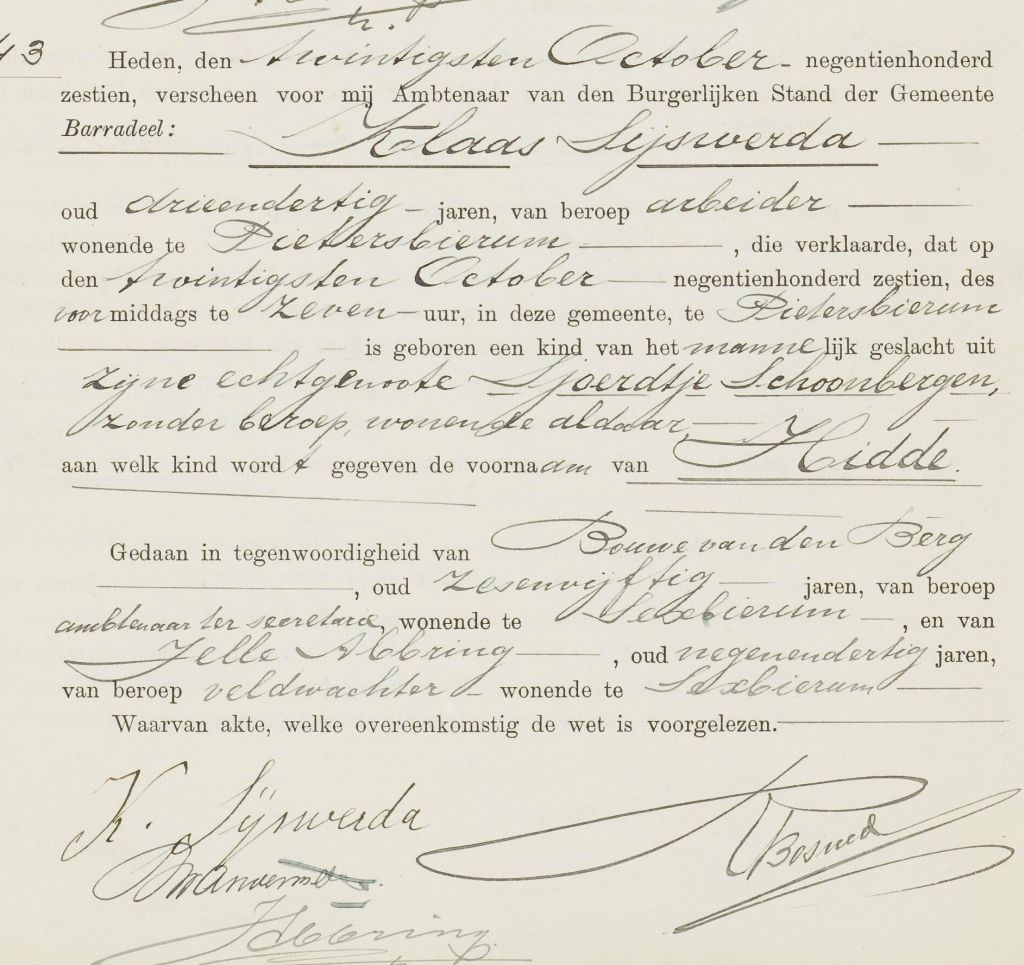 43
Heden, den twintigsten October - negentienhonderd
zestien, verscheen voor mij Ambtenaar van den Burgerlijken Stand der Gemeente
Barradeel: Klaas Sijswerda
oud drieendertig - jaren, van beroep arbeider
wonende te Pietersbierum, die verklaarde, dat op
den twintigsten October negentienhonderd zestien, des
voormiddags te zeven uur, in deze gemeente, te Pietersbierum
is geboren een kind van het mannelijk geslacht uit
zijne echtgenoote Sjoerdtje Schoonbergen,
zonder beroep, wonende aldaar,
aan welk kind wordt gegeven de voornaam van Hidde.
Gedaan in tegenwoordigheid van Bouwe van den Berg
, oud zesenvijftig jaren, van beroep
ambtenaar ter secretarie, wonende te Sexbierum, en van
Jelle Abbring, oud negenendertig jaren,
van beroep veldwachter - wonende te Sexbierum
Waarvan akte, welke overeenkomstig de wet is voorgelezen.
K. Sijswerda
JAbbring